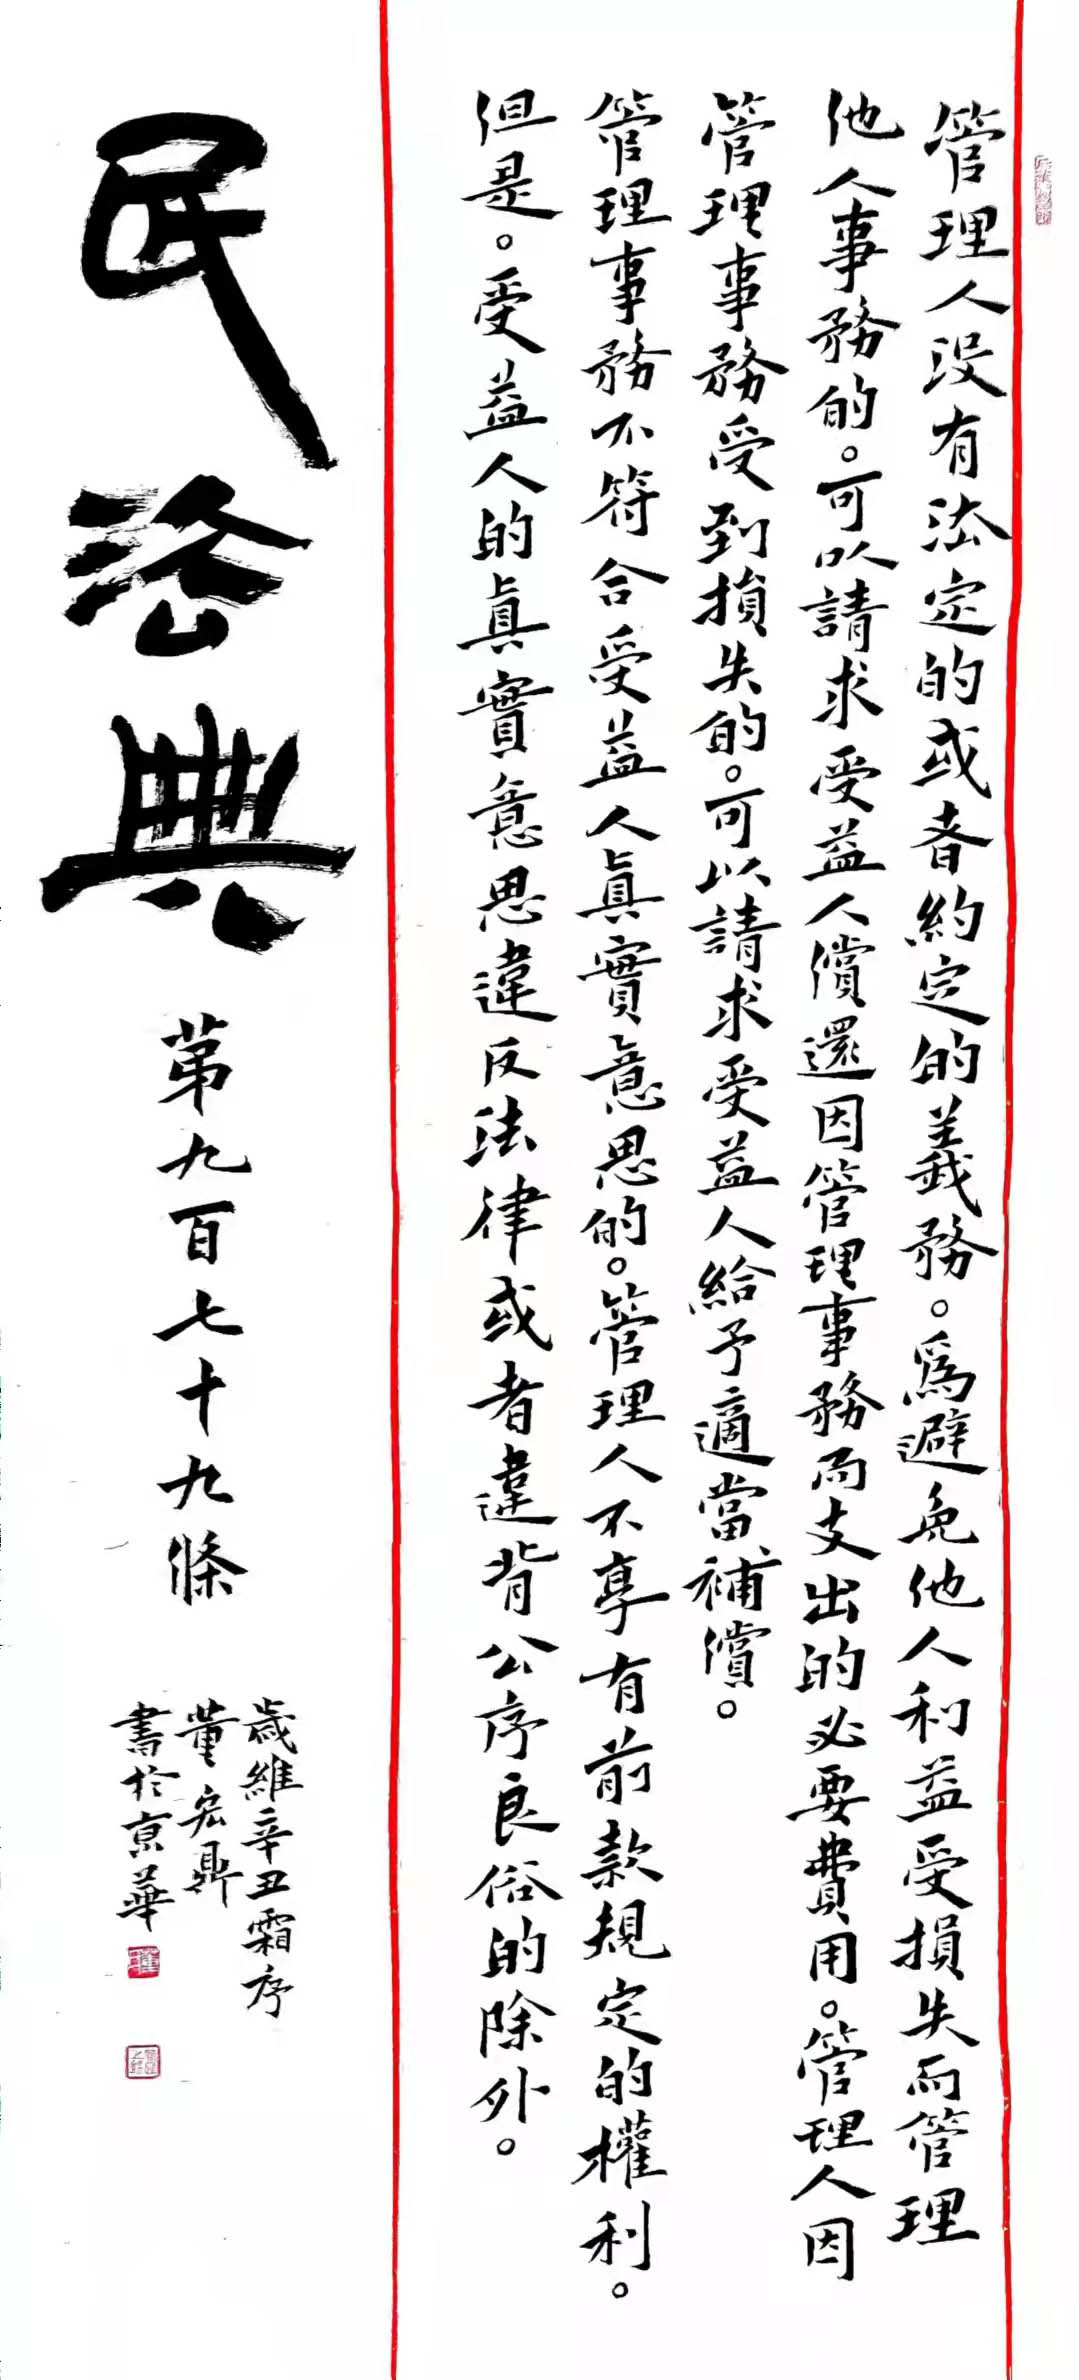 管理人没有法定的或者約定的義務。為避免他人利益受損失而管理
他人事務的。可以請求受益人償還因管理事務而支出的必要費用。管理人因
管理事務受到損失的。可以請求受益人給予適當補償。
管理事務不符合受益人真實意思的。管理人不享有前款規定的權利。
但是。受益人的真實意思違反法律或者違背公序良俗的除外。
民法典
第九百七十九條
歲維辛丑霜序
董宏鼎
書於京華